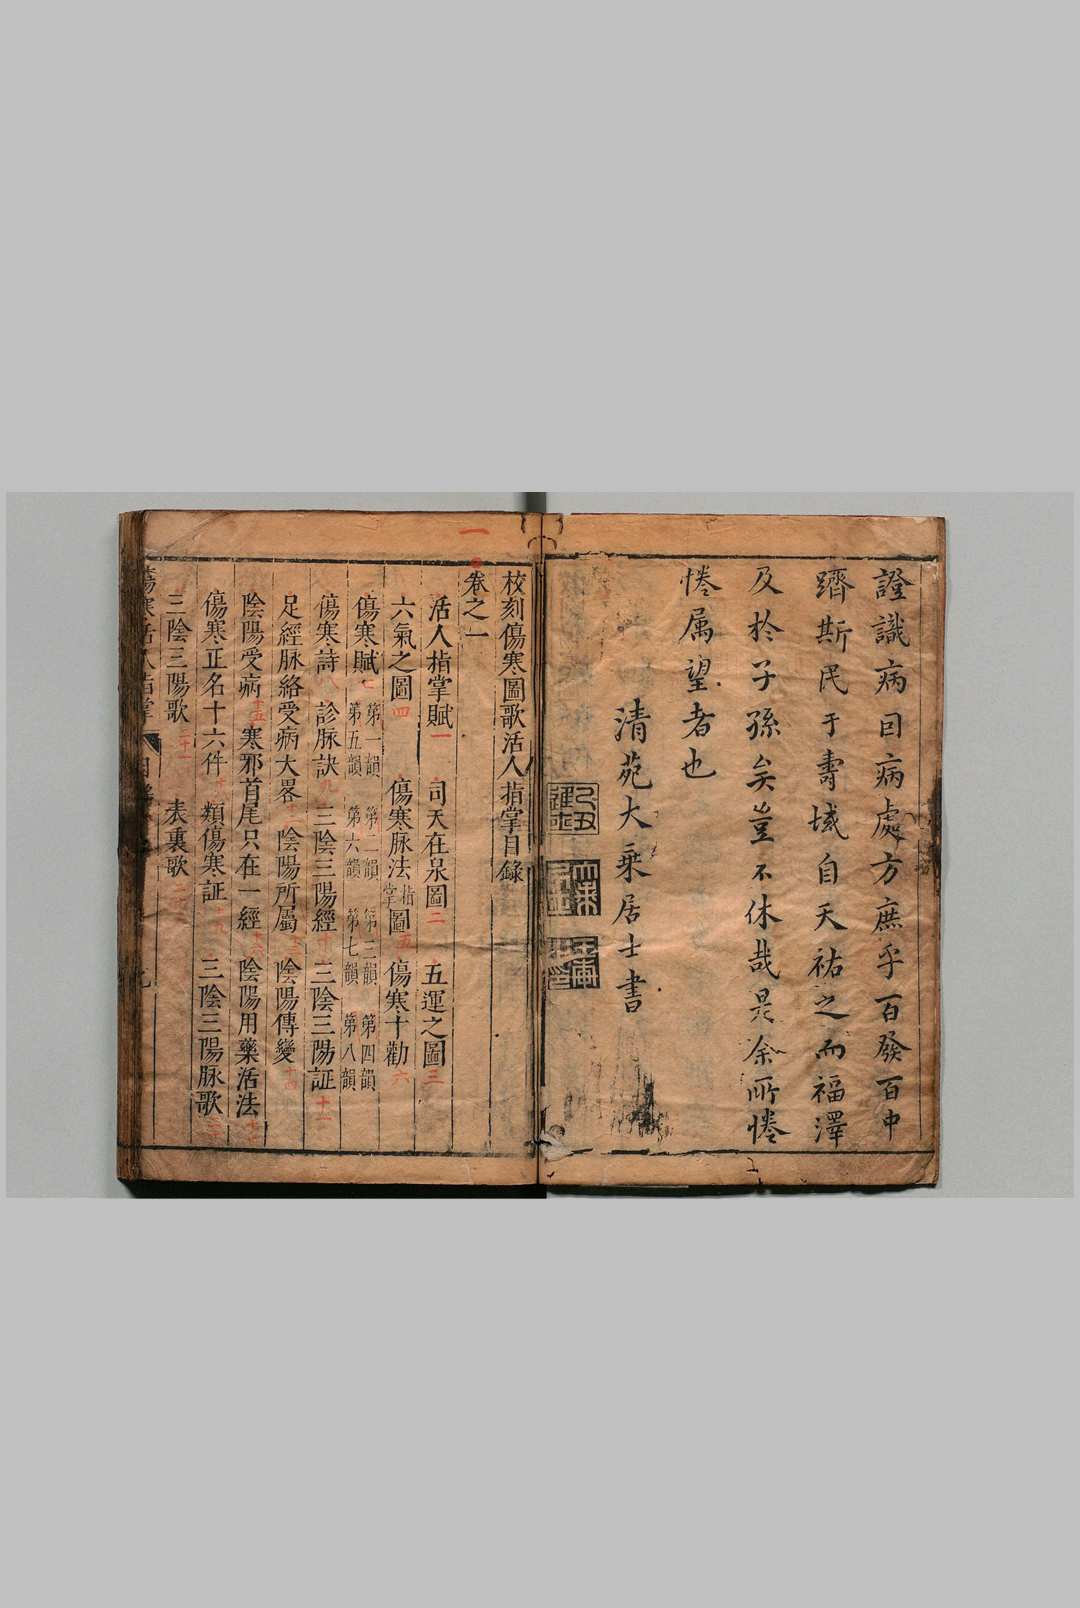 證識病因病處方庶乎百發百中
躋斯民于壽域自天祐之而福澤
及於子孫矣豈不休哉是余所惓
惓属望者也
清苑大乘居士書
校刻傷寒圖歌活人指掌目錄
一
卷之一
活人指掌賦一 司天在泉圖二 五運之圖三
六氣之圖四 傷寒脉法指掌圖五 傷寒十勸六
傷寒賦七 第一韻 第二韻 第三韻 第四韻
第五韻 第六韻 第七韻 第八韻
傷寒詩八 診脉訣九 三陰三陽經十 三陰三陽証十一
足經脉絡受病大畧 陰陽所屬 陰陽傳變十四
陰陽受病十五 寒邪首尾只在一經十六 陰陽用藥活法
傷寒正名十六件 類傷寒証十九 三陰三陽脉歌二十
三陰三陽歌二十一 表裏歌